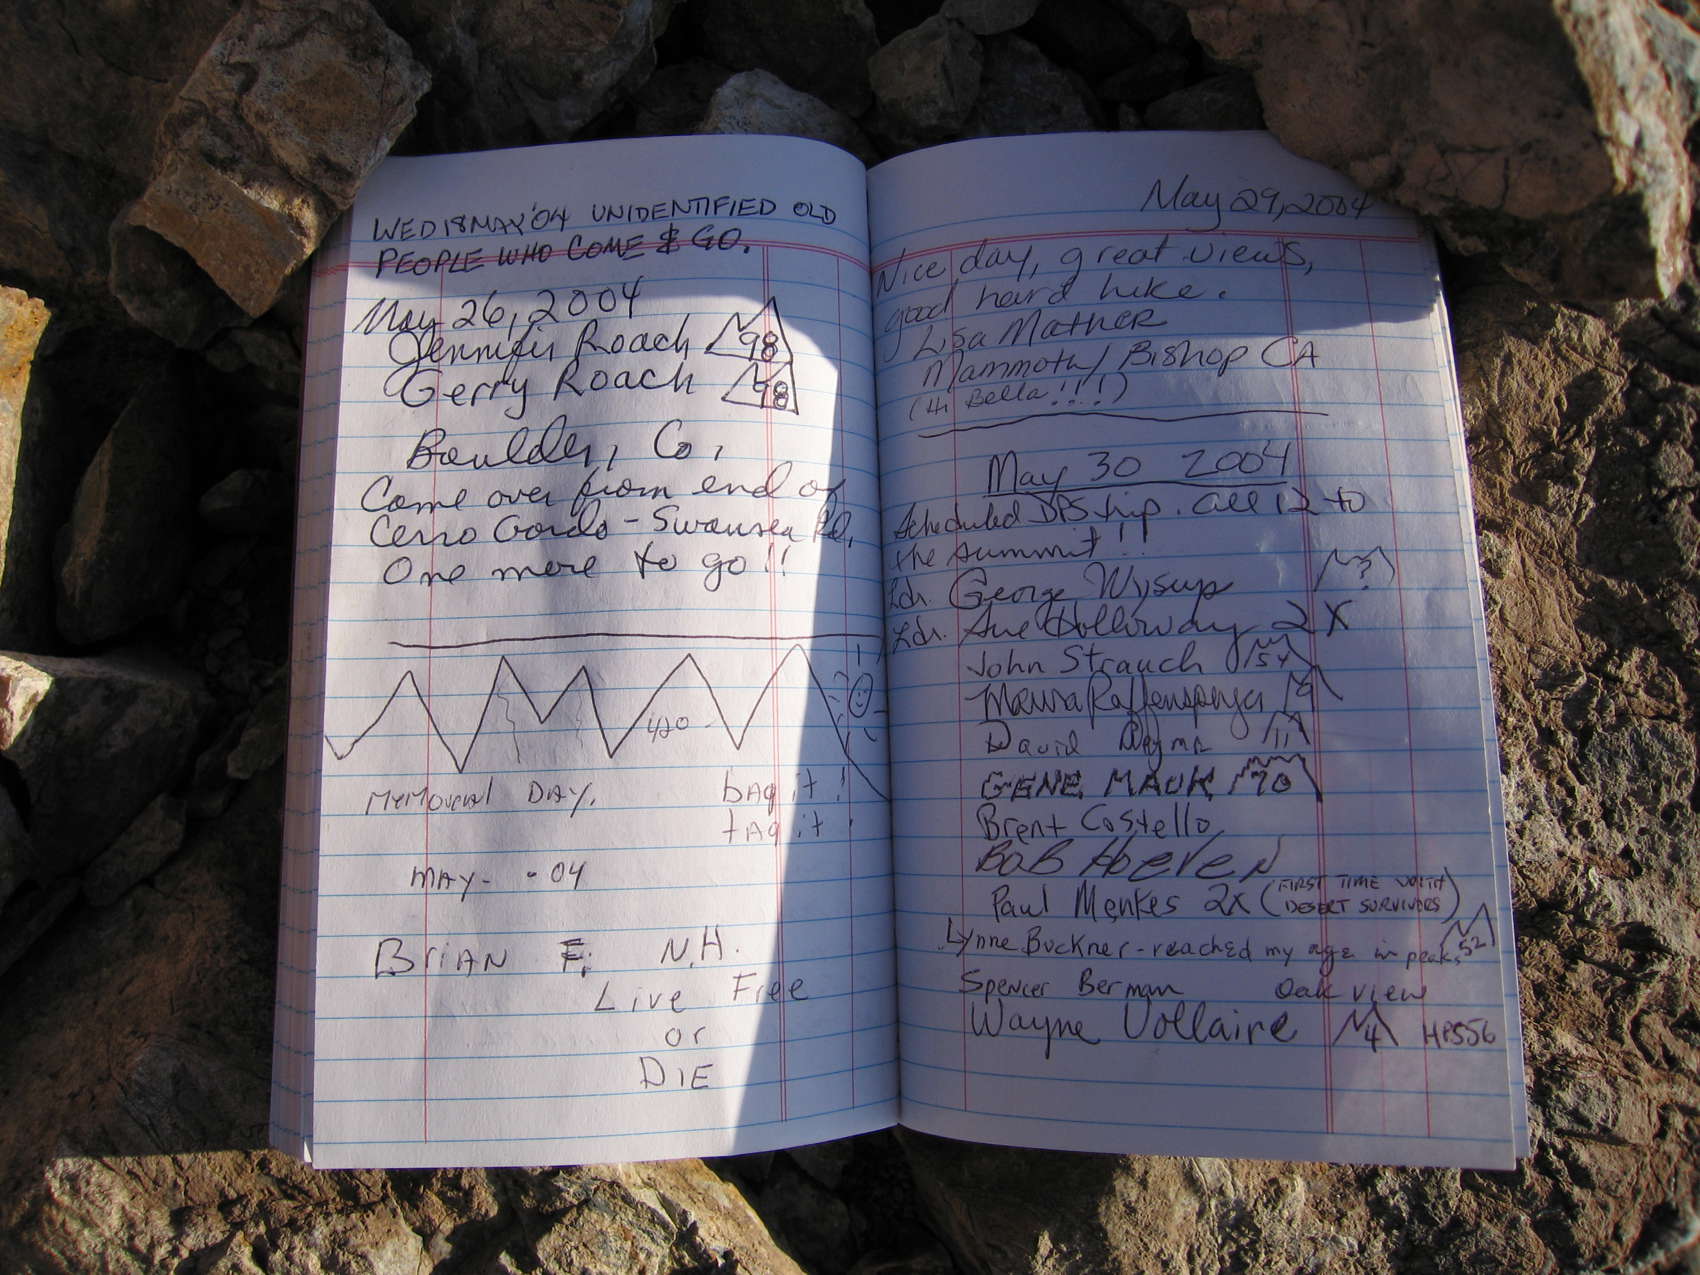 WED 18 MAY '04 UNIDENTIFIED OLD
PEOPLE WHO COME & GO.
May 26, 2004
Jennifer Roach 98
Gerry Roach 98
Boulder, Co,
Come over from end of
Cerro Gordo - Swansea Rd,
One more to go!!
420
MeMorial DAY.
bAg it!
tAg it!
MAY- -04
BriAN F. N.H.
Live Free
or
DIE
May 29, 2004
Nice day, great views,
good hard hike.
Lisa Mather
Mammoth/Bishop CA
(Hi Bella!!!)
May 30 2004
Scheduled DPS trip. all 12 to
the summit!!
Ldr. George Wysup ?
Ldr. Sue Holloway 2X
John Strauch 54
Maura Raffensperger 9
David 11
GENE MAUK 90
Brent Costello
BOB HOEVEN
Paul Menkes 2X (FIRST TIME WITH
DESERT SURVIVORS)
Lynne Buckner - reached my age in peaks 52
Spencer Berman Oak View
Wayne Vollaire 4 HPS56